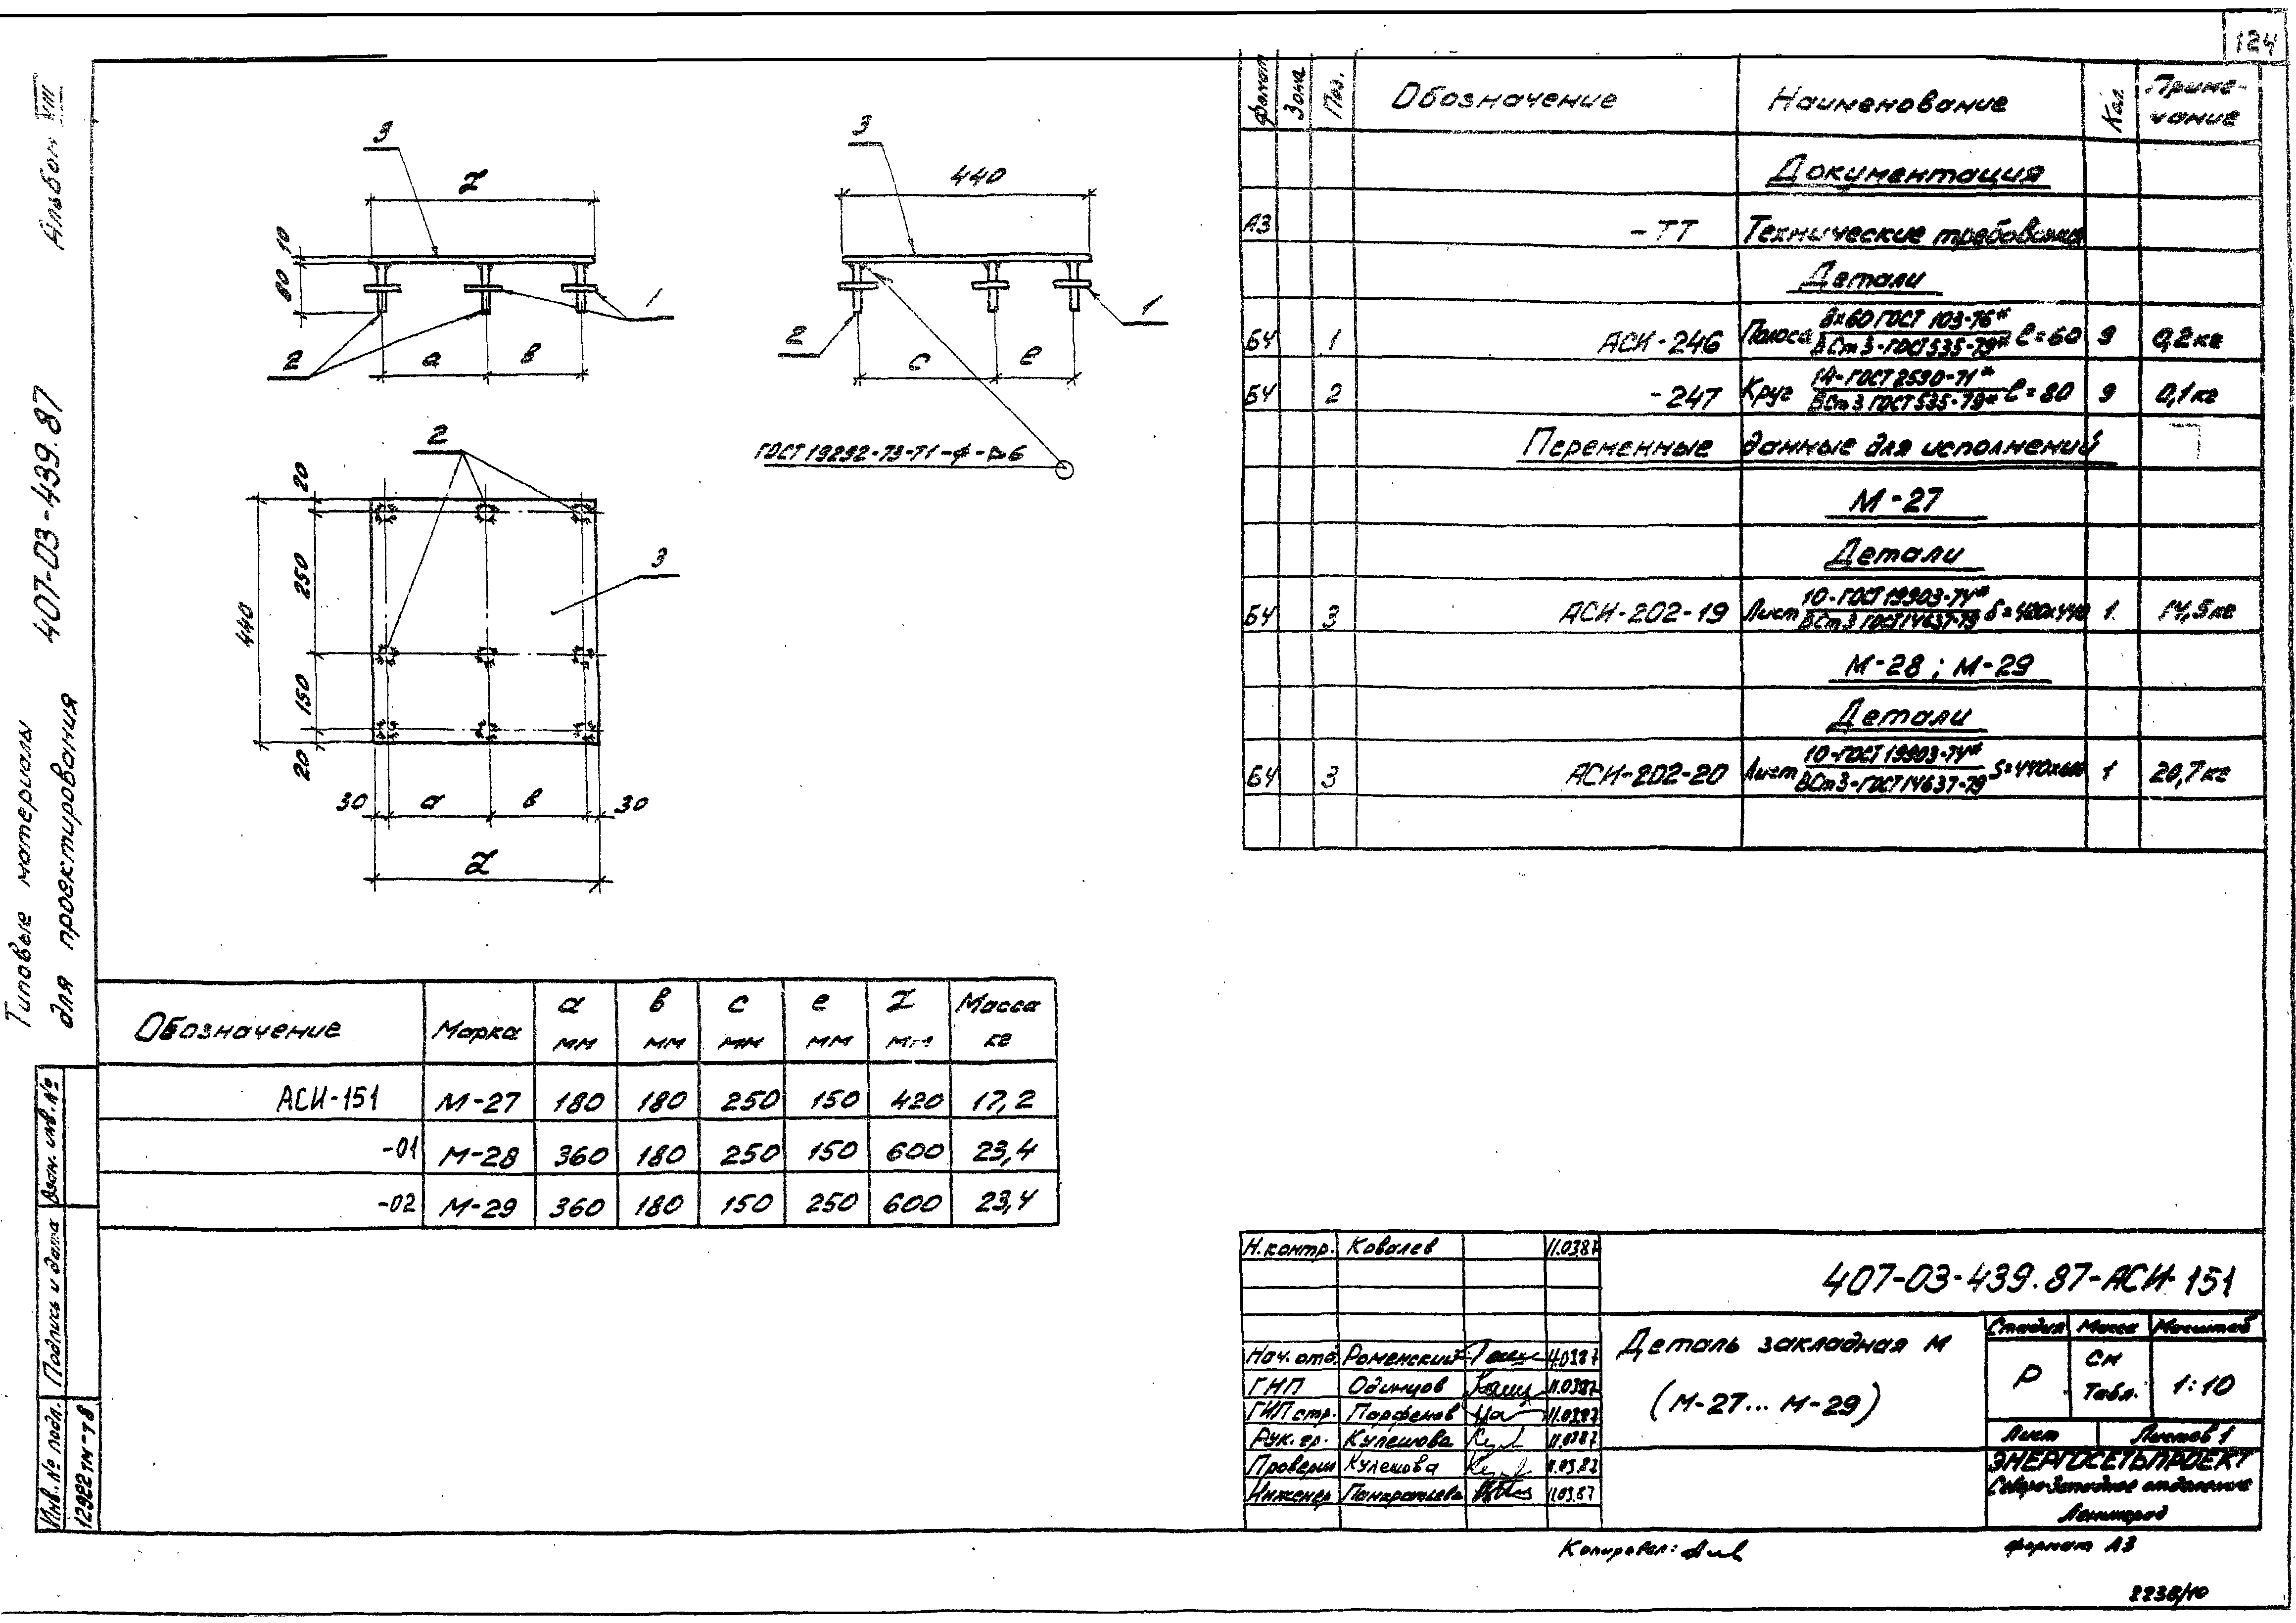 124
Альбом VIII
407-03-439.87
Типовые материалы
для проектирования
3
Z
10
80
1
2
а
в
3
440
2
1
с
е
ГОСТ 19292-73-Т1-ф-⊳6
2
20
250
440
150
20
3
30
а
в
30
Z
Формат Зона Поз. Обозначение Наименование Кол. Приме-
чание
Документация
А3 -ТТ Технические требования
Детали
БЧ 1 АСИ-246 Полоса 8х60 ГОСТ 103-76* / ВСт3-ГОСТ 535-79* ℓ=60 9 0,2кг
БЧ 2 -247 Круг 14-ГОСТ 2590-71* / ВСт3 ГОСТ 535-79* ℓ=80 9 0,1кг
Переменные данные для исполнений
М-27
Детали
БЧ 3 АСИ-202-19 Лист 10-ГОСТ 19903-74* / ВСт3 ГОСТ 14637-79 1 14,5кг
М-28; М-29
Детали
БЧ 3 АСИ-202-20 Лист 10-ГОСТ 19903-74* / ВСт3-ГОСТ 14637-79 S=440х600 1 20,7кг
Обозначение Марка а мм в мм с мм е мм Z мм Масса кг
АСИ-151 М-27 180 180 250 150 420 17,2
-01 М-28 360 180 250 150 600 23,4
-02 М-29 360 180 150 250 600 23,4
Взам. инв. №
Подпись и дата
Инв. № подл.
12922тм-т8
Н.контр. Ковалев 11.03.87
407-03-439.87-АСИ-151
Нач. отд. Роменский 11.03.87
ГИП Одинцов 11.03.87
ГИП стр. Парфенов 11.03.87
Рук. гр. Кулешова 11.03.87
Проверил Кулешова 11.03.87
Инженер Панкратьева 11.03.87
Деталь закладная М
(М-27... М-29)
Стадия Масса Масштаб
Р См Табл. 1:10
Лист Листов 1
ЭНЕРГОСЕТЬПРОЕКТ
Северо-Западное отделение
Ленинград
Копировал:
формат А3
2238/10